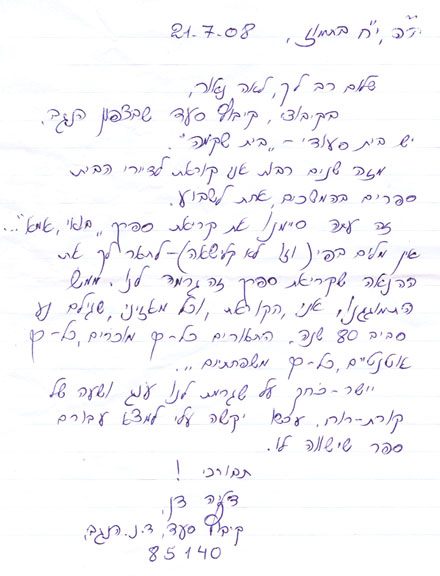 יד"ה, י"ח בתמוז, 21-7-08
שלום רב לך, לאה נאור,
בקיבוצי, קיבוץ סעד שבצפון הנגב,
יש בית סעודי - "בית שקמה".
מזה שנים רבות אני קוראת לדיירי הבית
ספרים בהמשכים, אחת לשבוע.
זה עתה סיימנו את קריאת ספרך "בואי, אמא"...
אין מלים בפי (וזו לא קלישאה) - לתאר לך את
ההנאה שקריאת ספרך זה גרמה לנו. ממש
התמוגגנו, אני, הקוראת, וכל מאזיני, שגילם נע
סביב 80 שנה. התאורים כל-כך מוכרים, כל-כך
אוטנטיים, כל-כך משפחתיים...
יישר-כחך על שגרמת לנו ענג ושעה של
קורת-רוח. עכשו יקשה עלי למצא עבורם
ספר שישווה לו.
תבורכי!
דן,
קיבוץ סעד, ד.נ. הנגב,
85140